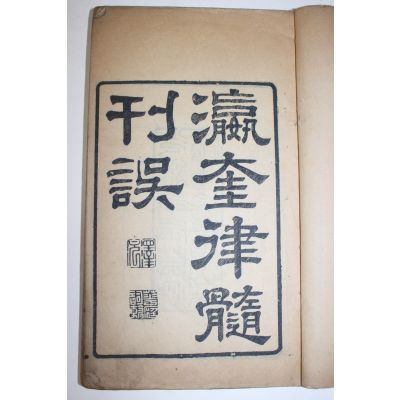 瀛奎律髓
刊誤